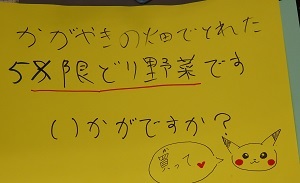 かがやきの畑でとれた
5限どり野菜です
いかがですか?
買って♥